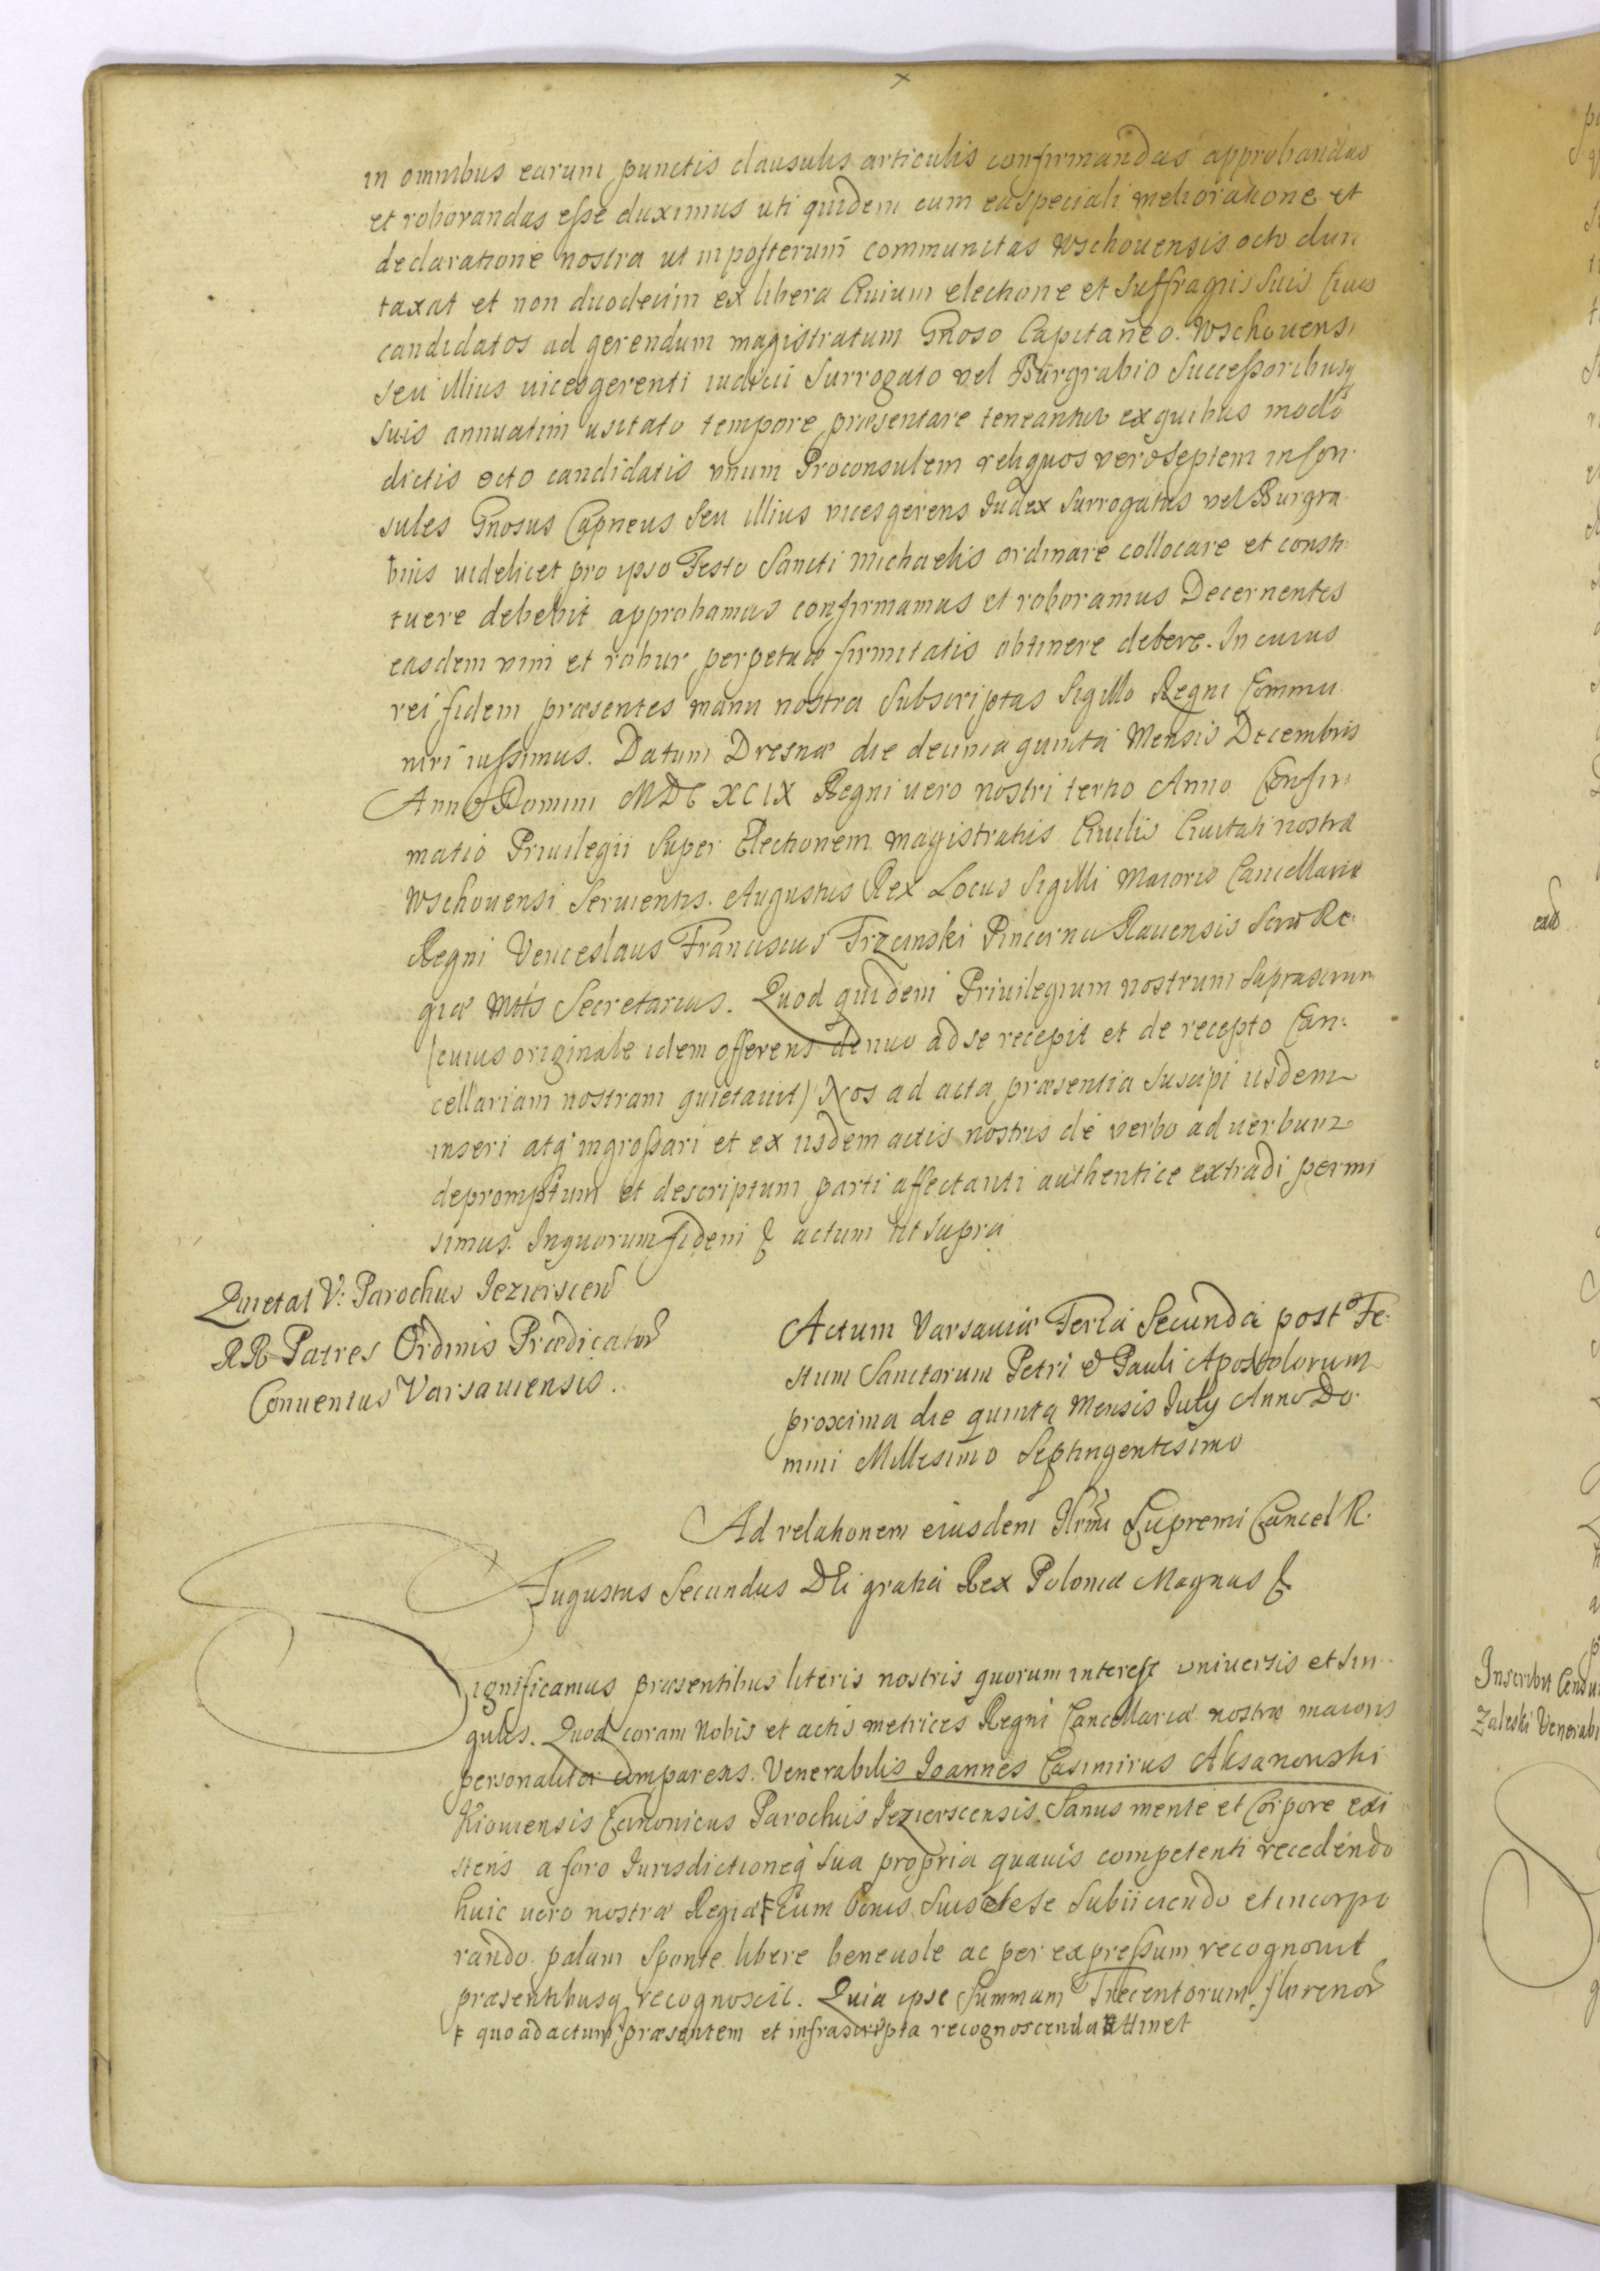 in omnibus earum punctis clausulis articulis confirmandas approbandas
et roborandas esse duximus uti quidem cum ea speciali melioratione et
declaratione nostra ut in posterum communitas Wschouensis octo dun
taxat et non duodecim ex libera Ciuium electione et suffragiis suis Ciues
candidatos ad gerendum magistratum Gnoso Capitaneo Wschouensi
seu illius uicesgerenti iudicii Surrogato vel Burgrabio Successoribusq
suis annuatim usitato tempore præsentare teneantur ex quibus modo
dictis octo candidatis vnum Proconsulem reliquos vero septem in Con
sules Gnosus Capneus Seu illius vicesgerens Iudex Surrogatus vel Burgra
bius uidelicet pro ipso Festo Sancti Michaelis ordinare collocare et consti
tuere debebit approbamus confirmamus et roboramus Decernentes
easdem vim et robur perpetuæ firmitatis obtinere debere. In cuius
rei fidem præsentes manu nostra Subscriptas Sigillo Regni Commu
niri iussimus. Datum Dresnæ die decima quinta Mensis Decembris
Anno Domini MDCXCIX Regni uero nostri tertio Anno Confir
matio Priuilegii Super Electionem magistratus Ciuilis Ciuitati nostræ
Wschouensi Seruientis. Augustus Rex Locus Sigilli Maioris Cancellariæ
Regni Venceslaus Franciscus Trzcinski Pincerna Rauensis Sæ Re
giæ Mtts Secretarius. Quod quidem Priuilegium nostrum Suprascriptum
(cuius originale idem offerens denuo ad se recepit et de recepto Can
cellariam nostram quietauit) Nos ad acta præsentia suscipi iisdem
inseri atq ingrossari et ex iisdem actis nostris de verbo ad uerbum
depromptum et descriptum parti affectanti authentice extradi permi
simus. In quorum fidem & actum ut supra
Quietat V: Parochus Iezierscen
RR Patres Ordinis Prædicator
Conuentus Varsauiensis.
Actum Varsauiæ Feria Secunda post Fe
stum Sanctorum Petri & Pauli Apostolorum
proxima die quinta Mensis July Anno Do
mini Millesimo Septingentesimo
Ad relationem eiusdem Illrmi Supremi Cancel R.
Augustus Secundus DEi gratia Rex Poloniæ Magnus &
Significamus præsentibus literis nostris quorum interest vniuersis et sin
gulis. Quod coram Nobis et actis metrices Regni Cancellariæ nostræ maioris
personaliter comparens. Venerabilis Ioannes Casimirus Aksanowski
Kiouiensis Canonicus Parochus Iezierscensis Sanus mente et Corpore exi
stens a foro Iurisdictioneq sua propria quauis competenti recedendo
huic uero nostræ Regiæ ⸸ Cum bonis suis et se subiiciendo et incorpo
rando palam sponte libere beneuole ac per expressum recognouit
præsentibusq recognoscit. Quia ipse Summam Trecentorum florenor
⸸ quo ad actum præsentem et infrascripta recognoscenda attinet
ead
Inscribit
Zaleski Venerabi